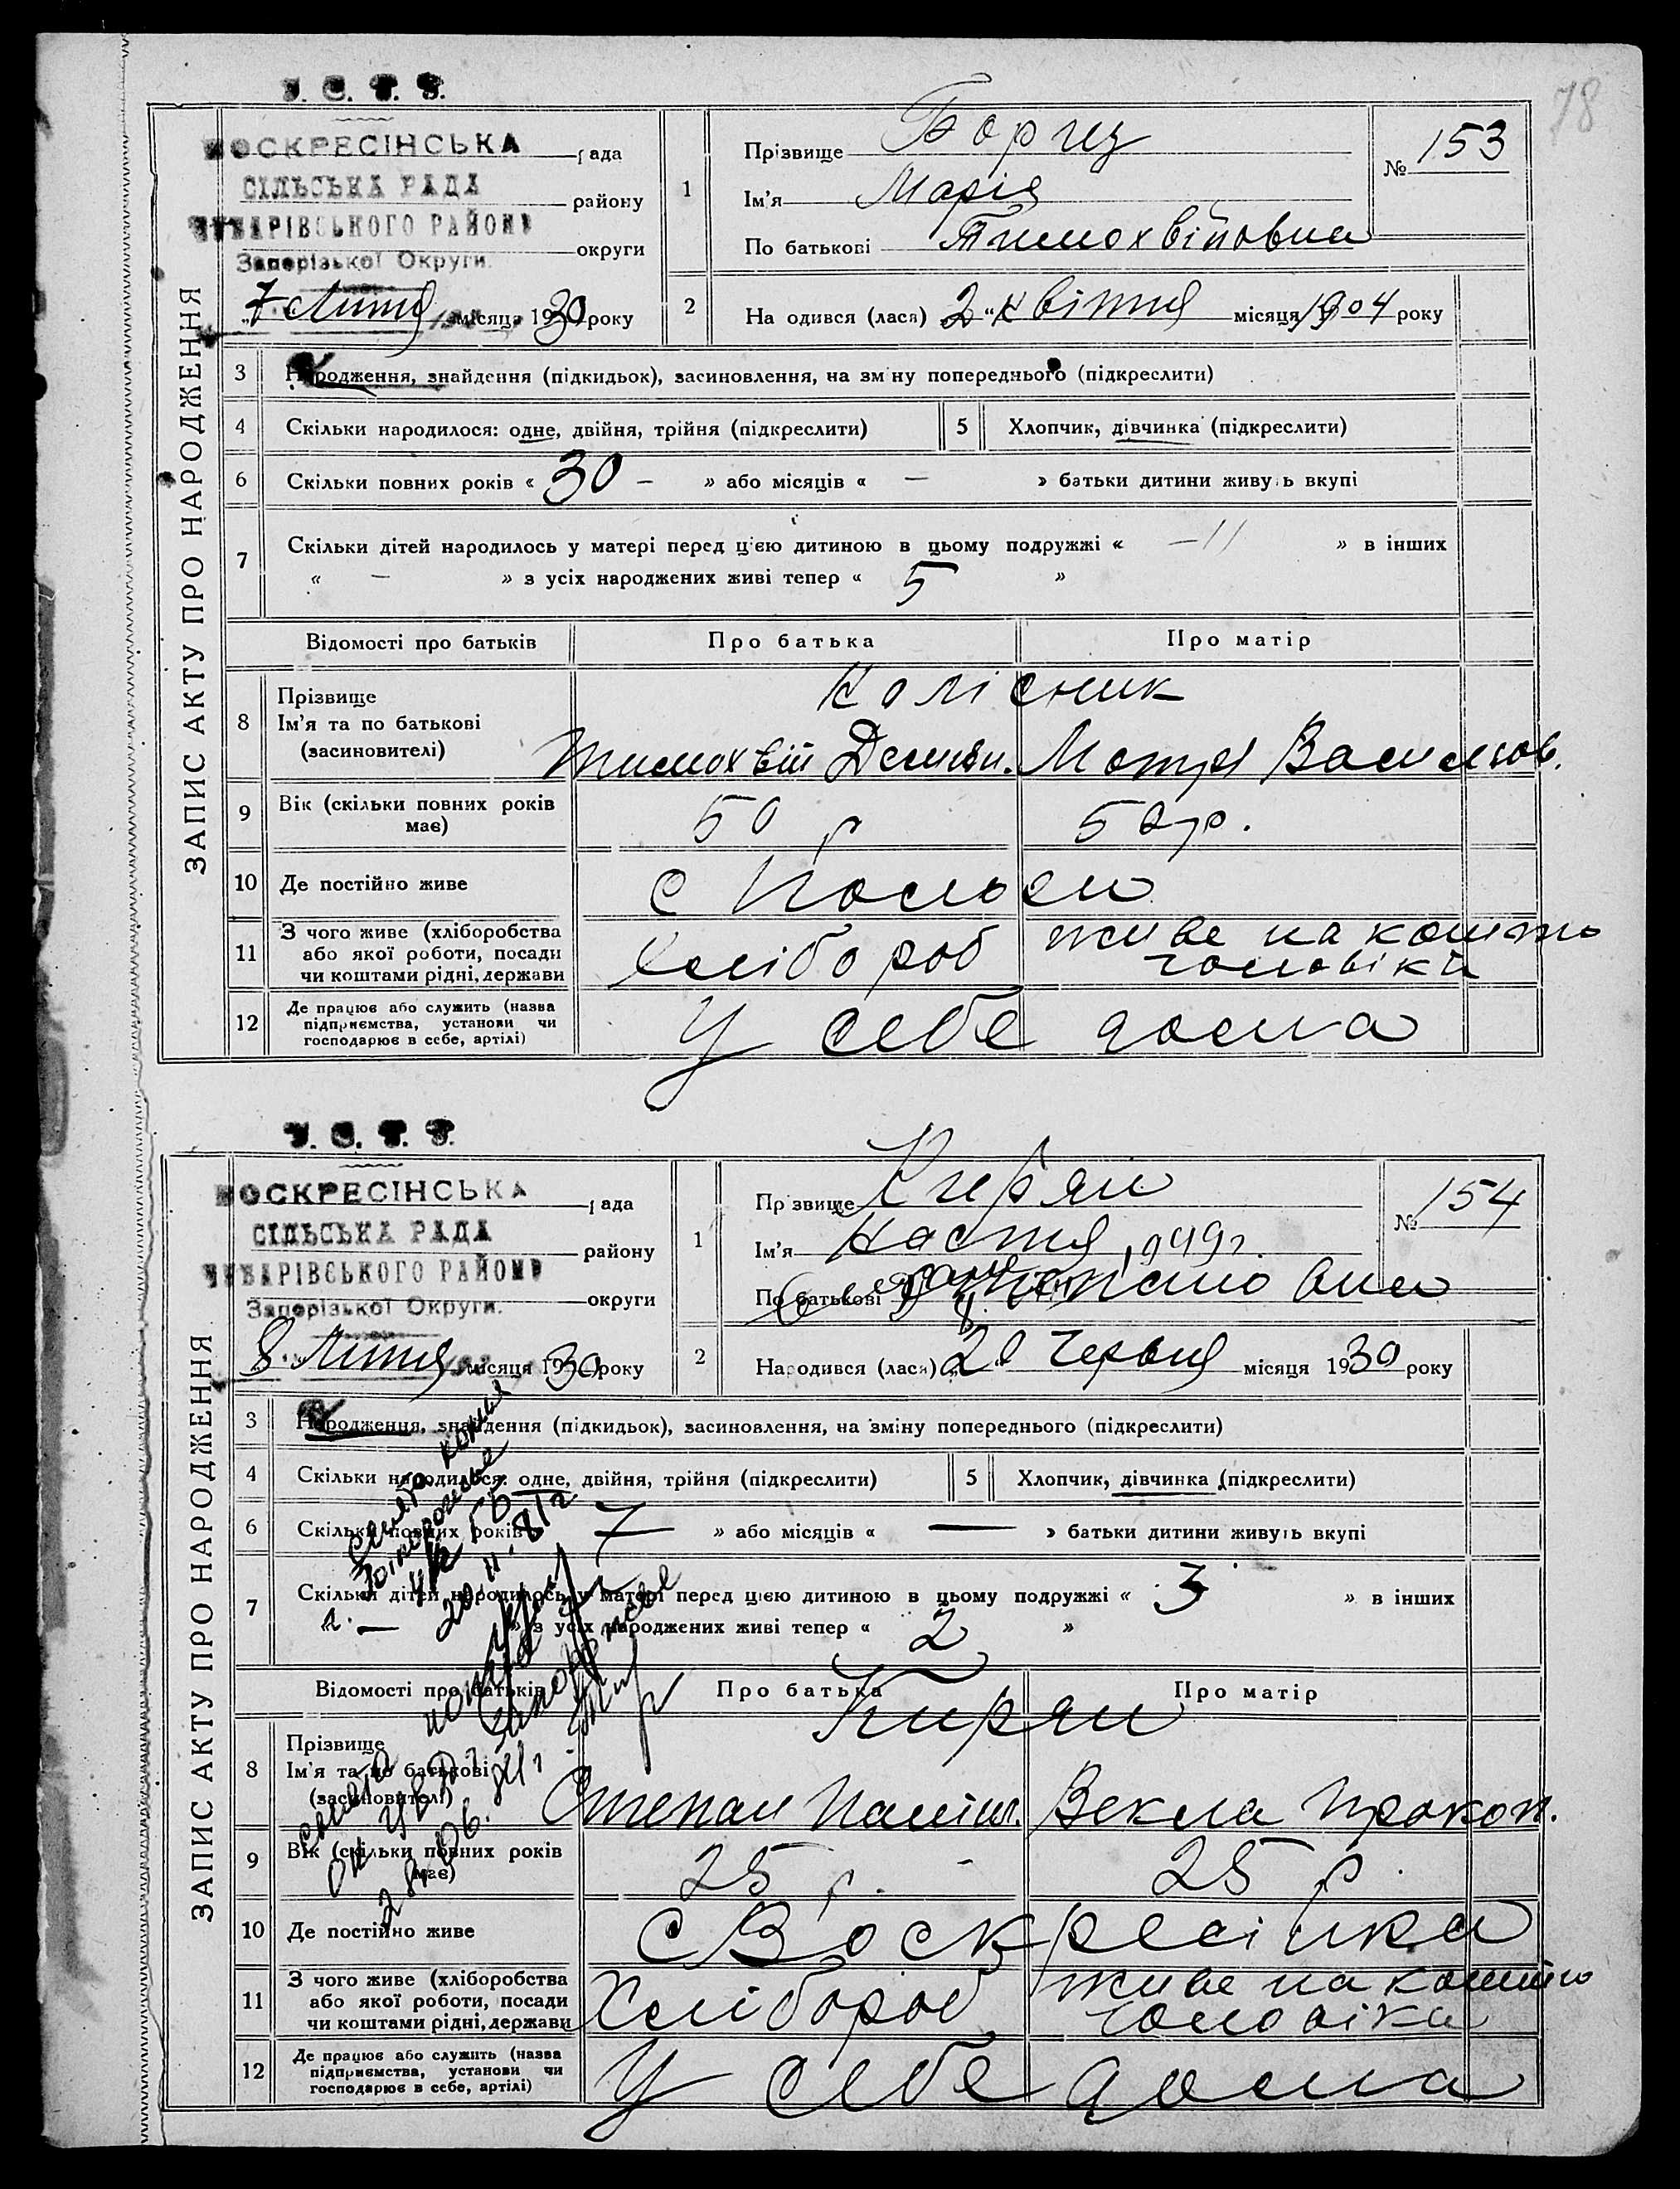 У. С. Р. Р.
78
ВОСКРЕСІНСЬКА рада
СІЛЬСЬКА РАДА району
ЧУБАРІВСЬКОГО РАЙОНУ
Запорізької Округи. округи
„7“ Липня місяця 1930 року
1 Прізвище Борщ
№ 153
Ім’я Марія
По батькові Тимохвіївна
2 На одився (лася) „2“ квітня місяця 1904 року
ЗАПИС АКТУ ПРО НАРОДЖЕННЯ
3 Народження, знайдення (підкидьок), засиновлення, на зміну попереднього (підкреслити)
4 Скільки народилося: одне, двійня, трійня (підкреслити)
5 Хлопчик, дівчинка (підкреслити)
6 Скільки повних років « 30 – » або місяців « — » батьки дитини живуть вкупі
7 Скільки дітей народилось у матері перед цією дитиною в цьому подружжі « – 11 » в інших
« – » з усіх народжених живі тепер « 5 »
Відомості про батьків Про батька Про матір
8 Прізвище
Ім’я та по батькові
(засиновителі)
Колісник
Тимохвій Демян. Мотря Василов.
9 Вік (скільки повних років має)
50 р 50 р.
10 Де постійно живе
11 З чого живе (хліборобства
або якої роботи, посади
чи коштами рідні, держави
Хлібороб живе на кошти
чоловіка
12 Де працює або служить (назва
підприємства, установи чи
господарює в себе, артілі)
У себе дома
У. С. Р. Р.
ВОСКРЕСІНСЬКА рада
СІЛЬСЬКА РАДА району
ЧУБАРІВСЬКОГО РАЙОНУ
Запорізької Округи. округи
8 Липня місяця 1930 року
1 Прізвище Кирян
№ 154
Ім’я Настя
По батькові Степановна
2 Народився (лася) „20“ Червня місяця 1930 року
ЗАПИС АКТУ ПРО НАРОДЖЕННЯ
3 Народження, знайдення (підкидьок), засиновлення, на зміну попереднього (підкреслити)
4 Скільки народилося: одне, двійня, трійня (підкреслити)
5 Хлопчик, дівчинка (підкреслити)
6 Скільки повних років 7 » або місяців « — » батьки дитини живуть вкупі
7 Скільки дітей народилось у матері перед цією дитиною в цьому подружжі « 3 » в інших
« — » з усіх народжених живі тепер « 2 »
Відомості про батьків Про батька Про матір
8 Прізвище
Ім’я та по батькові
(засиновителі)
Кирян
Степан Паніш. Векла Прокоп.
9 Вік (скільки повних років має)
25 р. 25 р
10 Де постійно живе
с Воскресінка
11 З чого живе (хліборобства
або якої роботи, посади
чи коштами рідні, держави
Хлібороб живе на кошти
чоловіка
12 Де працює або служить (назва
підприємства, установи чи
господарює в себе, артілі)
У себе дома